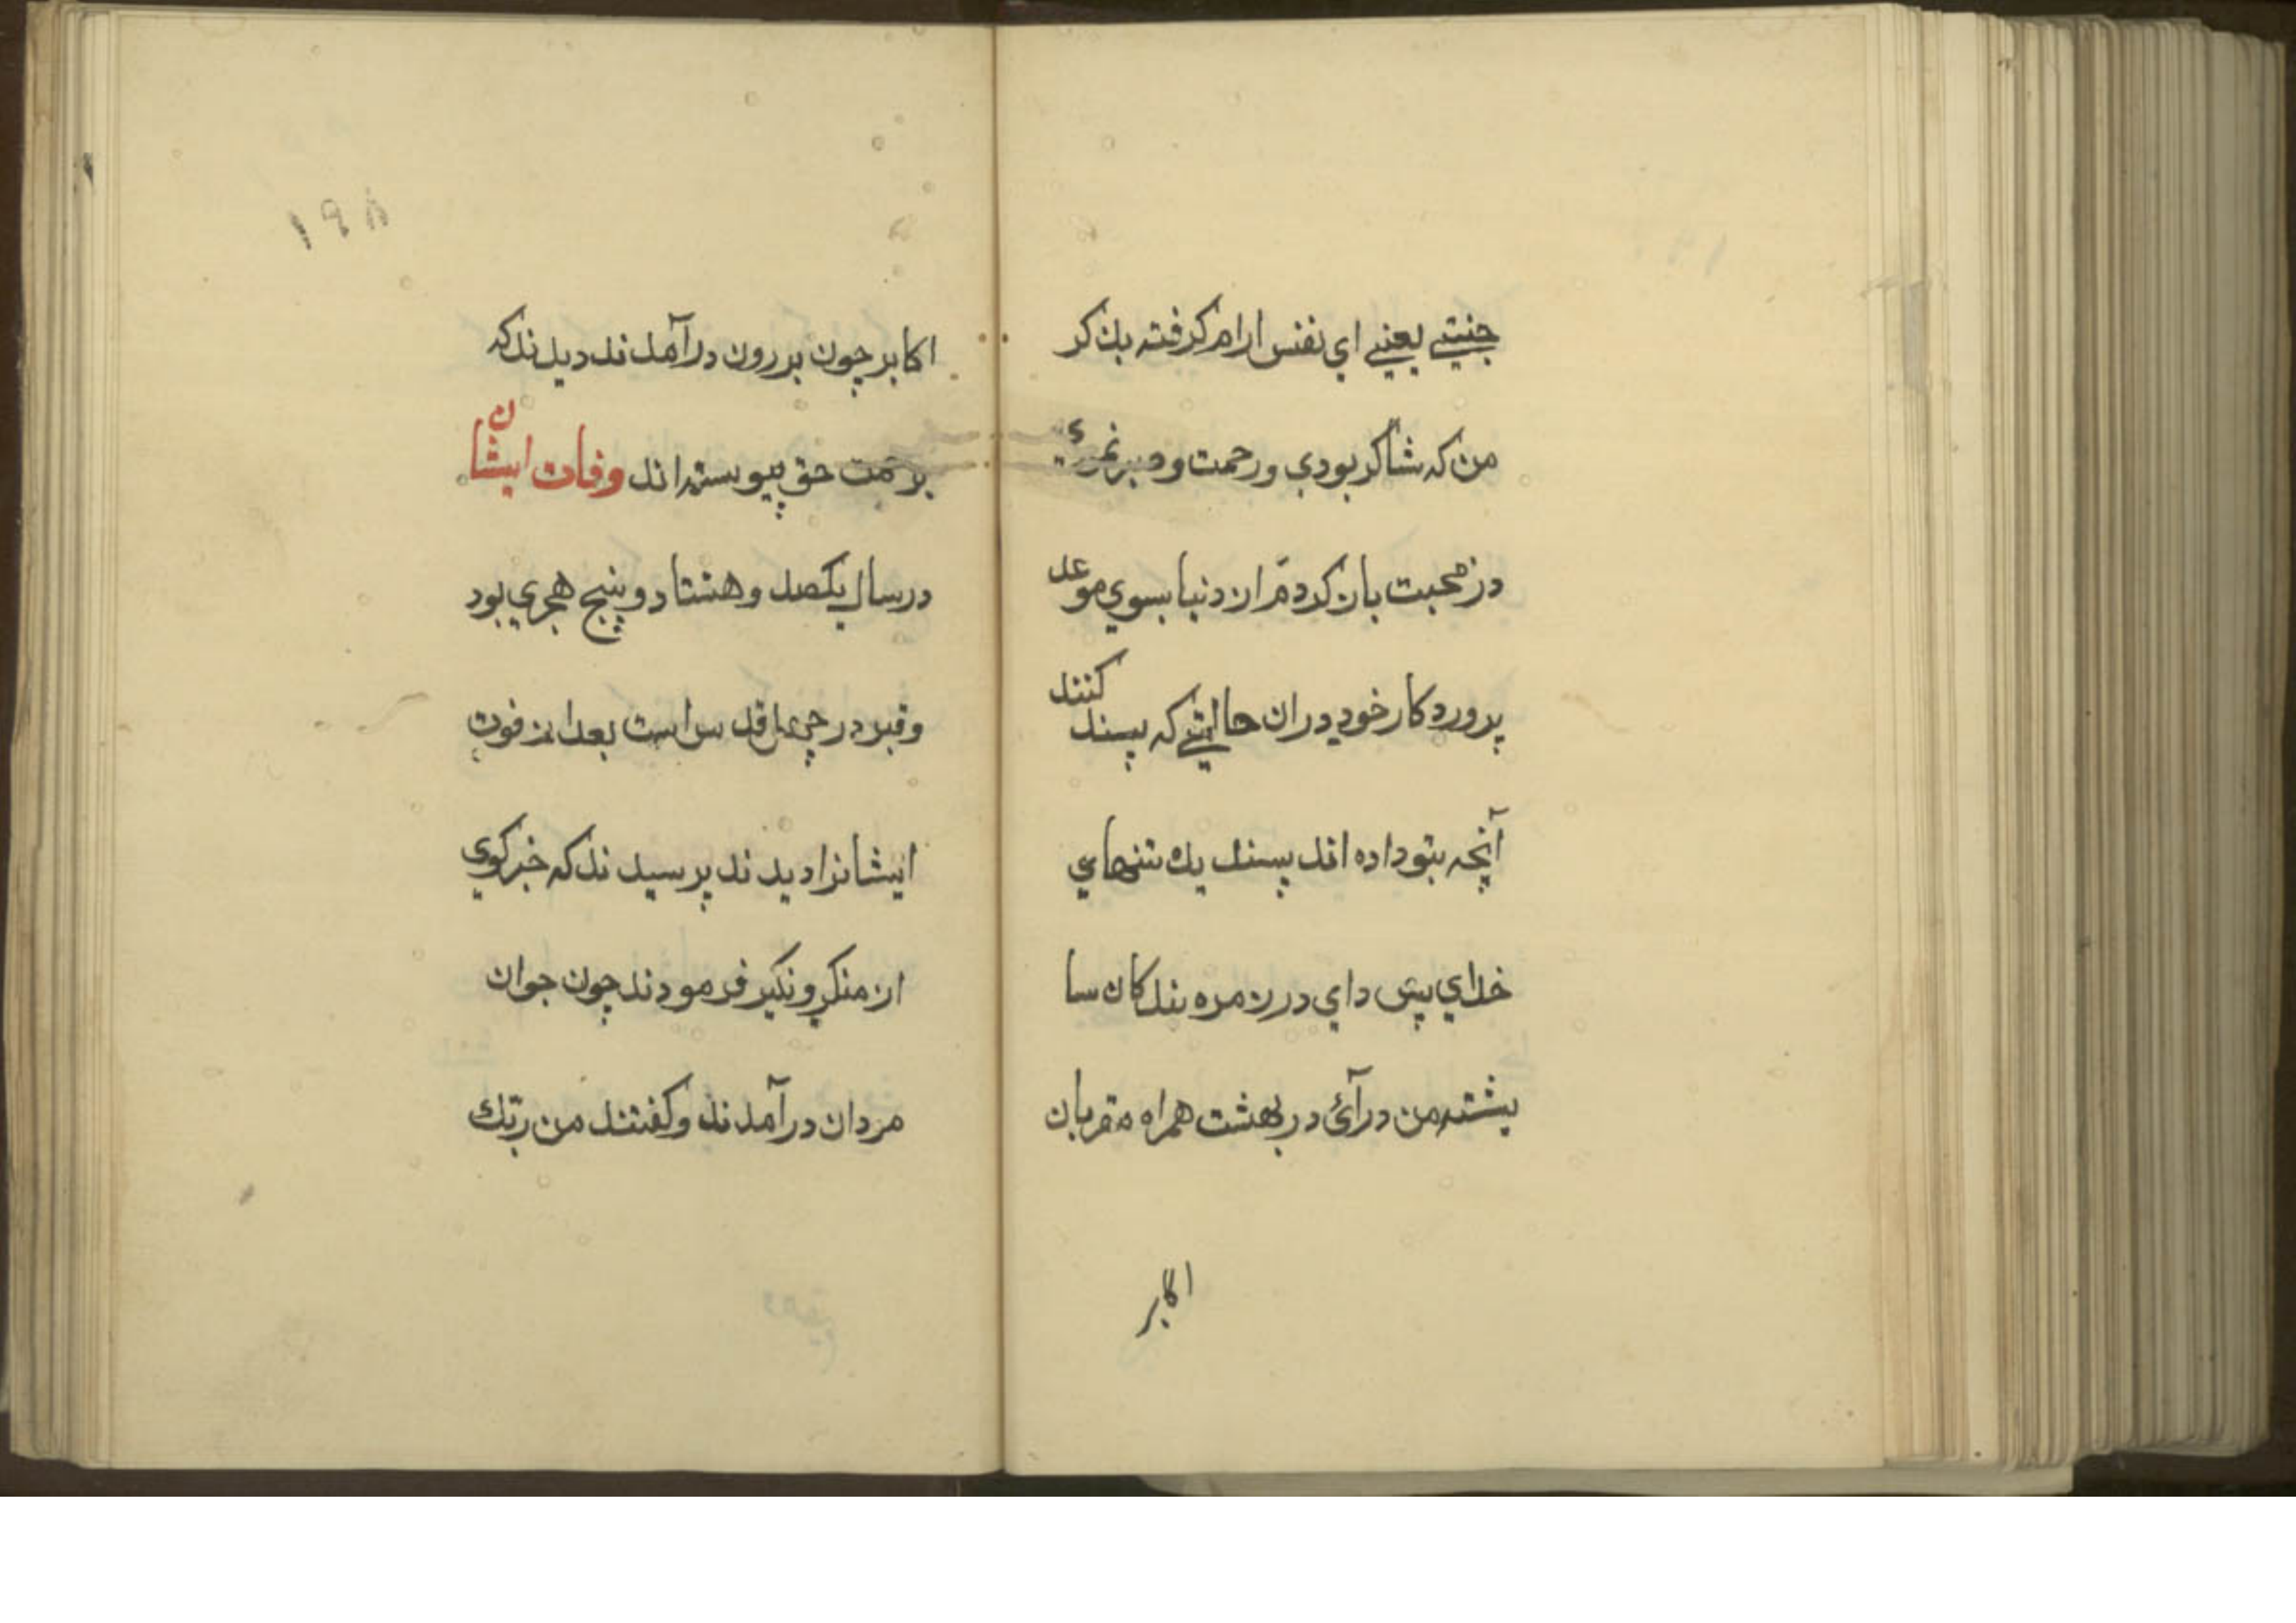 جنتي يعني اي نفس ارام كرفته بذكر
من كه شاكر بودي ورحمت وصبر نمودئ
در محبت باز كرد مر از دنيا بسوي موعد
پروردكار خود در ان حالتي كه پسند كنند
آنچه بتو داده اند پسنديده تنهاي
خداي پس داي در زمره بندكان سا
يشته من درآئ در بهشت همراه مقربان
اكابر
۱۹۸
اكابر چون بررون درآمدند ديدند كه
برحمت حق پيوسته اند وفات ايشان
در سال يكصد وهشتاد و پنج هجري بود
وقبر در است بعد از فوت
ايشانرا ديدند پرسيدند كه خبر كوي
از منكر ونكير فرمودند چون جوان
مردان درآمدند وكفتند من ربّك